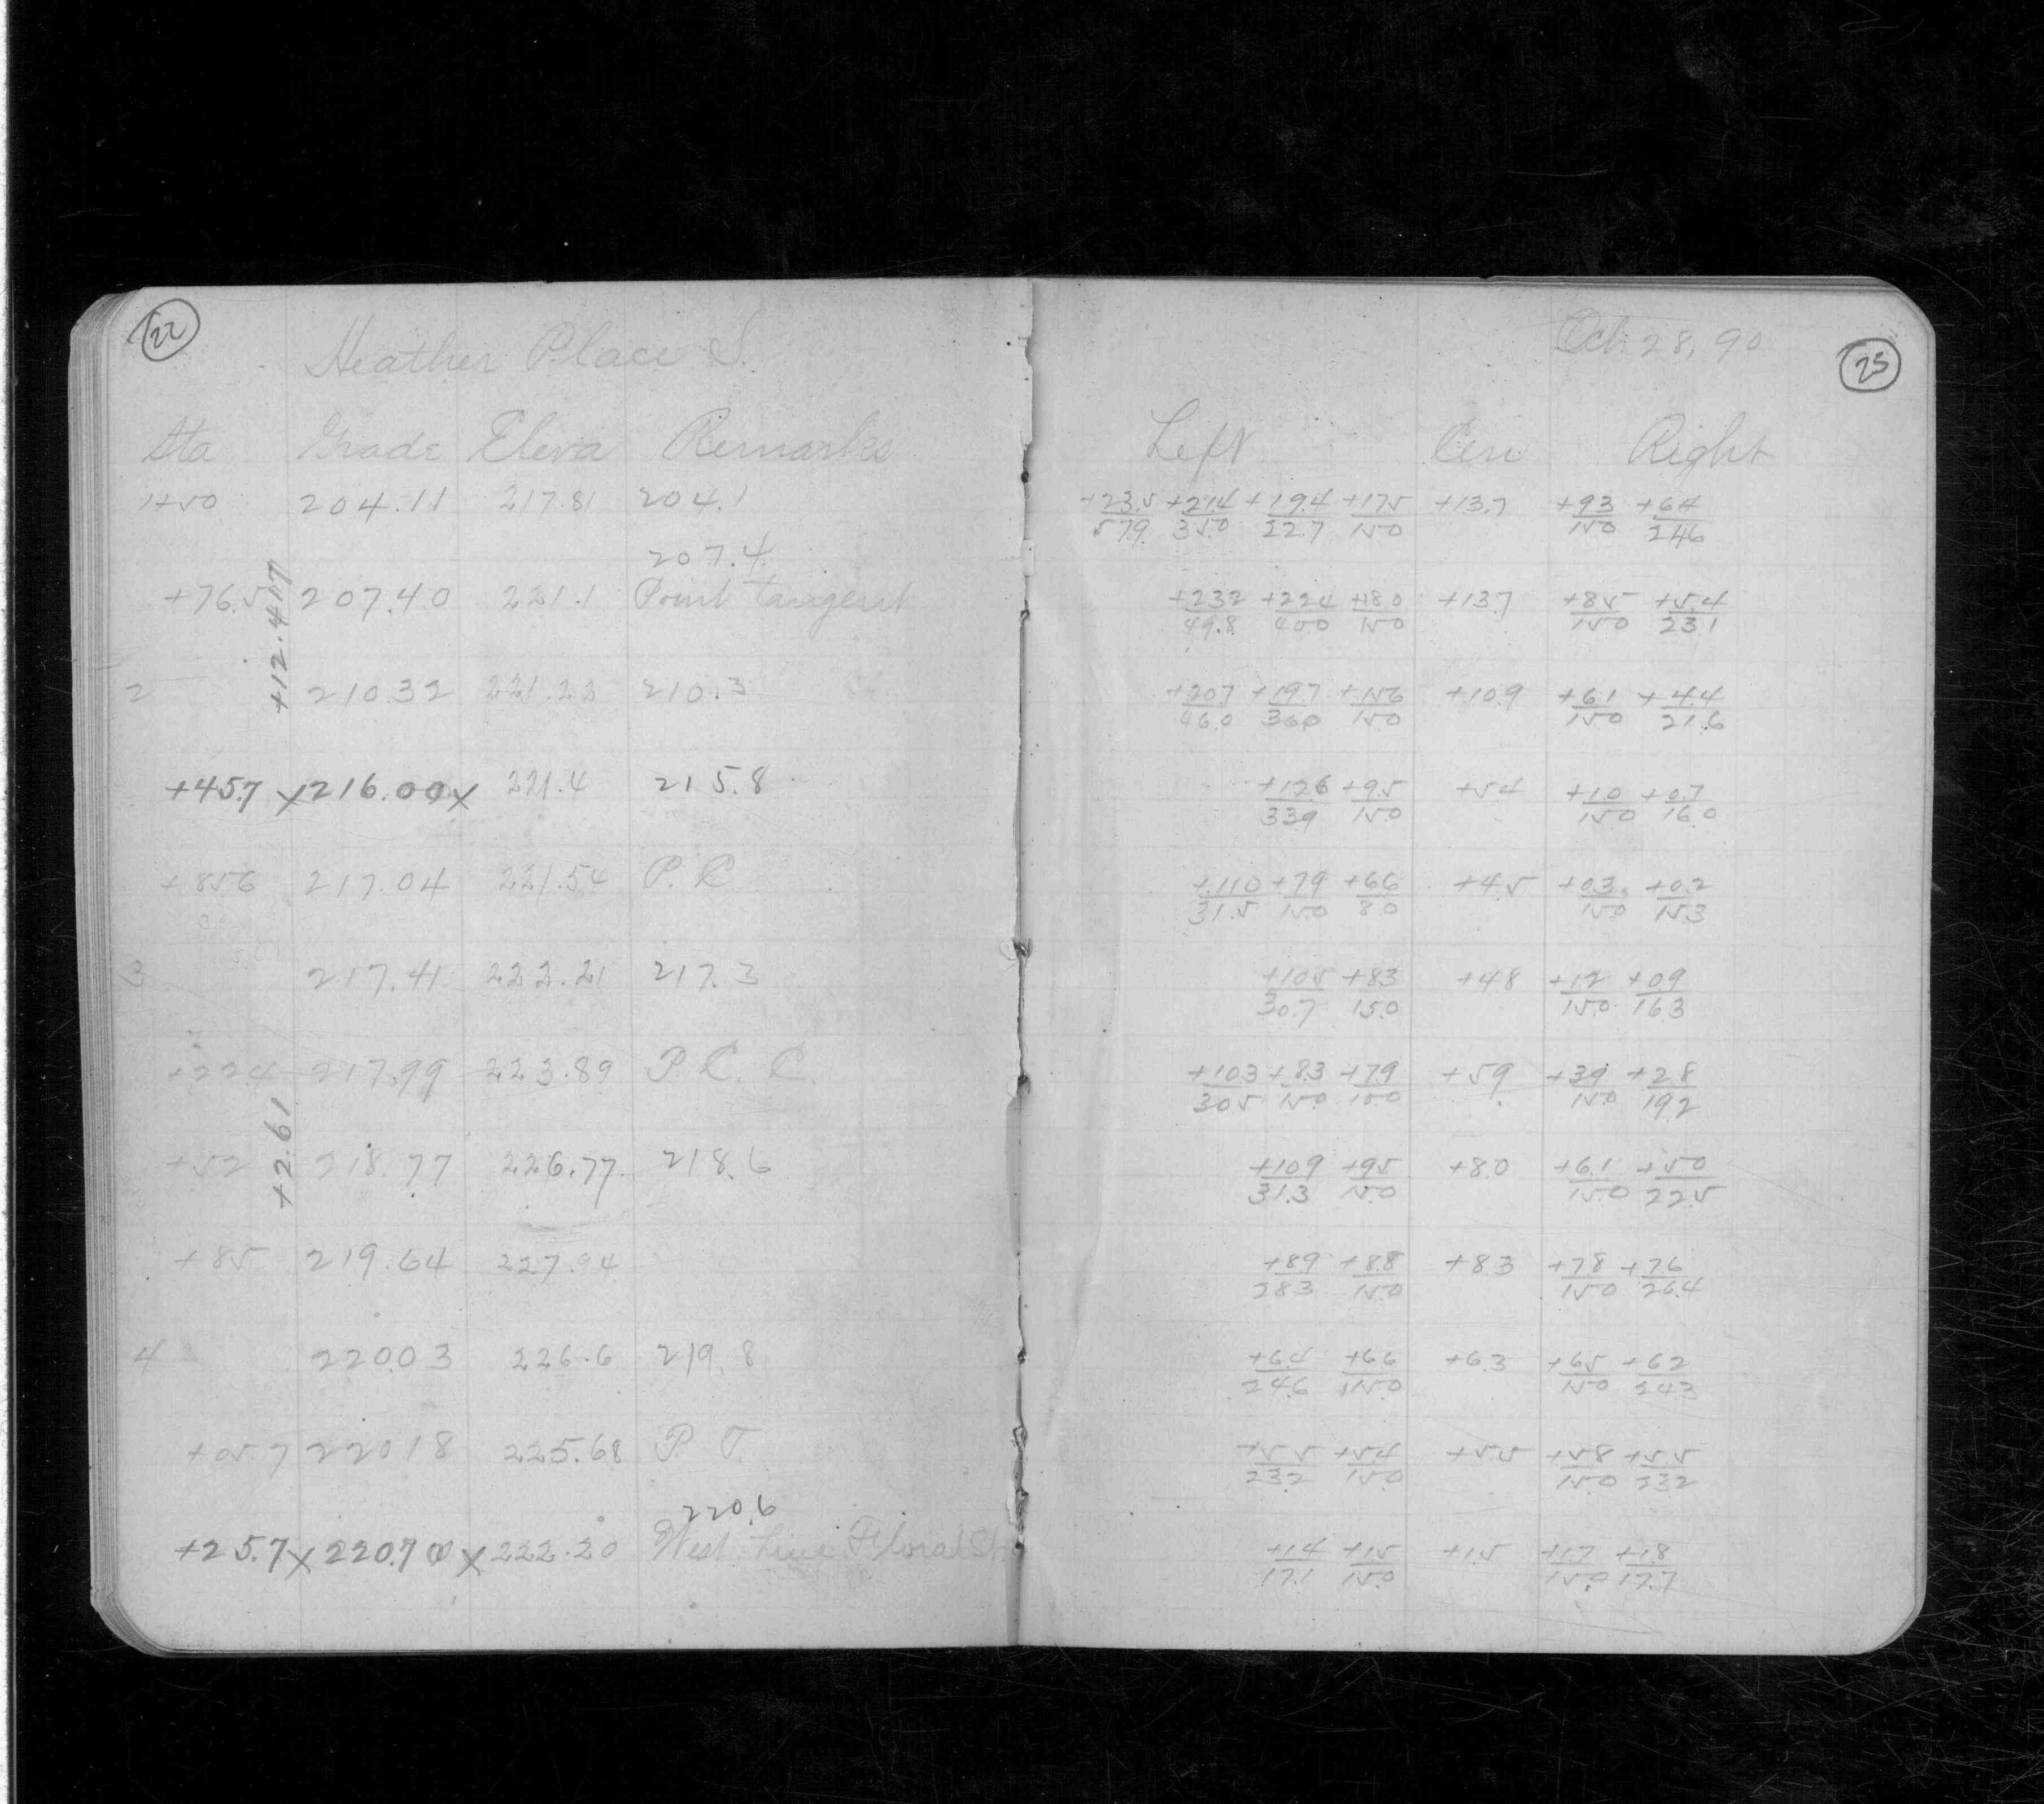 22
Heather Place S.
Sta Grade Eleva Remarks
1+50 204.11 217.81 204.1
207.4
+76.5 207.40 221.1 Point tangent
+12.417
2 210.32 221.23 210.3
+45.7 x 216.00 x 221.4 215.8
+85.6 217.04 221.54 P.C
3 217.41 222.21 217.3
+22.4 217.99 223.89 P.C.C.
+2.61
+52 218.77 226.77 218.6
+85 219.64 227.94
4 220.03 226.6 219.8
+05.7 220.18 225.68 P.T.
220.6
+25.7 x 220.70 x 222.20 West Line Floral St
Oct. 28, 90
23
Left Cen Right
+23.5 +21.4 +19.4 +17.5 +13.7 +9.3 +6.4
57.9 35.0 22.7 15.0 15.0 24.6
+23.2 +22.4 +18.0 +13.7 +8.5 +5.4
49.8 40.0 15.0 15.0 23.1
+20.7 +19.7 +15.6 +10.9 +6.1 +4.4
46.0 36.0 15.0 15.0 21.6
+12.6 +9.5 +5.4 +1.0 +0.7
33.9 15.0 15.0 16.0
+11.0 +7.9 +6.6 +4.5 +0.3 +0.2
31.5 15.0 8.0 15.0 15.3
+10.5 +8.3 +4.8 +1.2 +0.9
30.7 15.0 15.0 16.3
+10.3 +8.3 +7.9 +5.9 +3.9 +2.8
30.5 15.0 10.0 15.0 19.2
+10.9 +9.5 +8.0 +6.1 +5.0
31.3 15.0 15.0 22.5
+8.9 +8.8 +8.3 +7.8 +7.6
28.3 15.0 15.0 26.4
+6.4 +6.6 +6.3 +6.5 +6.2
24.6 15.0 15.0 24.3
+5.5 +5.4 +5.5 +5.8 +5.5
23.2 15.0 15.0 23.2
+1.4 +1.5 +1.5 +1.7 +1.8
17.1 15.0 15.0 17.7